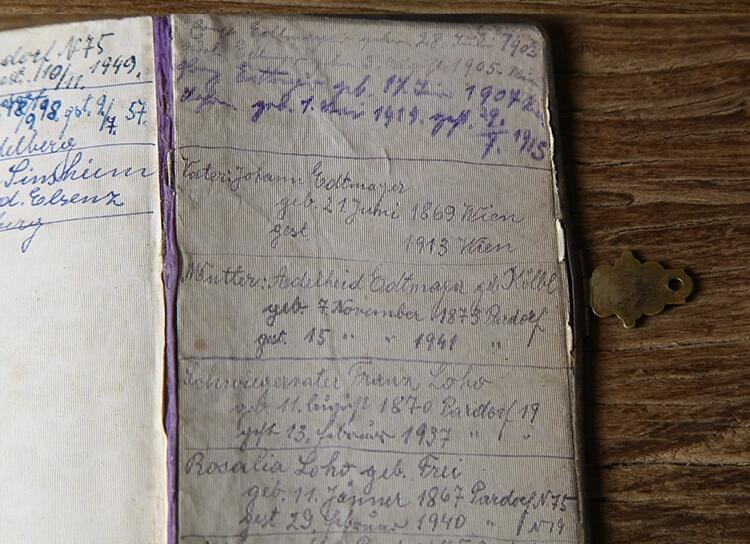 dorf N75
gest. 10/11. 1949.
gst. 9/7. 57.
delberg
Sinsheim
a.d. Elsenz
geb. 28. 1903
1905.
geb. 17. 1907
geb. 1. 1914. gest. 2./7. 1915
Vater: Johann Edtmayer
geb. 21 Juni 1869 Wien
gest 1913 Wien
Mutter: Adelheid Edtmayer geb. Kölbl
geb. 7 November 1873 Pardorf
gest. 15 " " 1941 "
Schwiegervater Franz Loho
geb. 11. August 1870 Pardorf 19
gest 13. Februar 1937 " "
Rosalia Loho geb. Frei
geb. 11. Jänner 1867 Pardorf N75
gest 29. Februar 1940 " N19